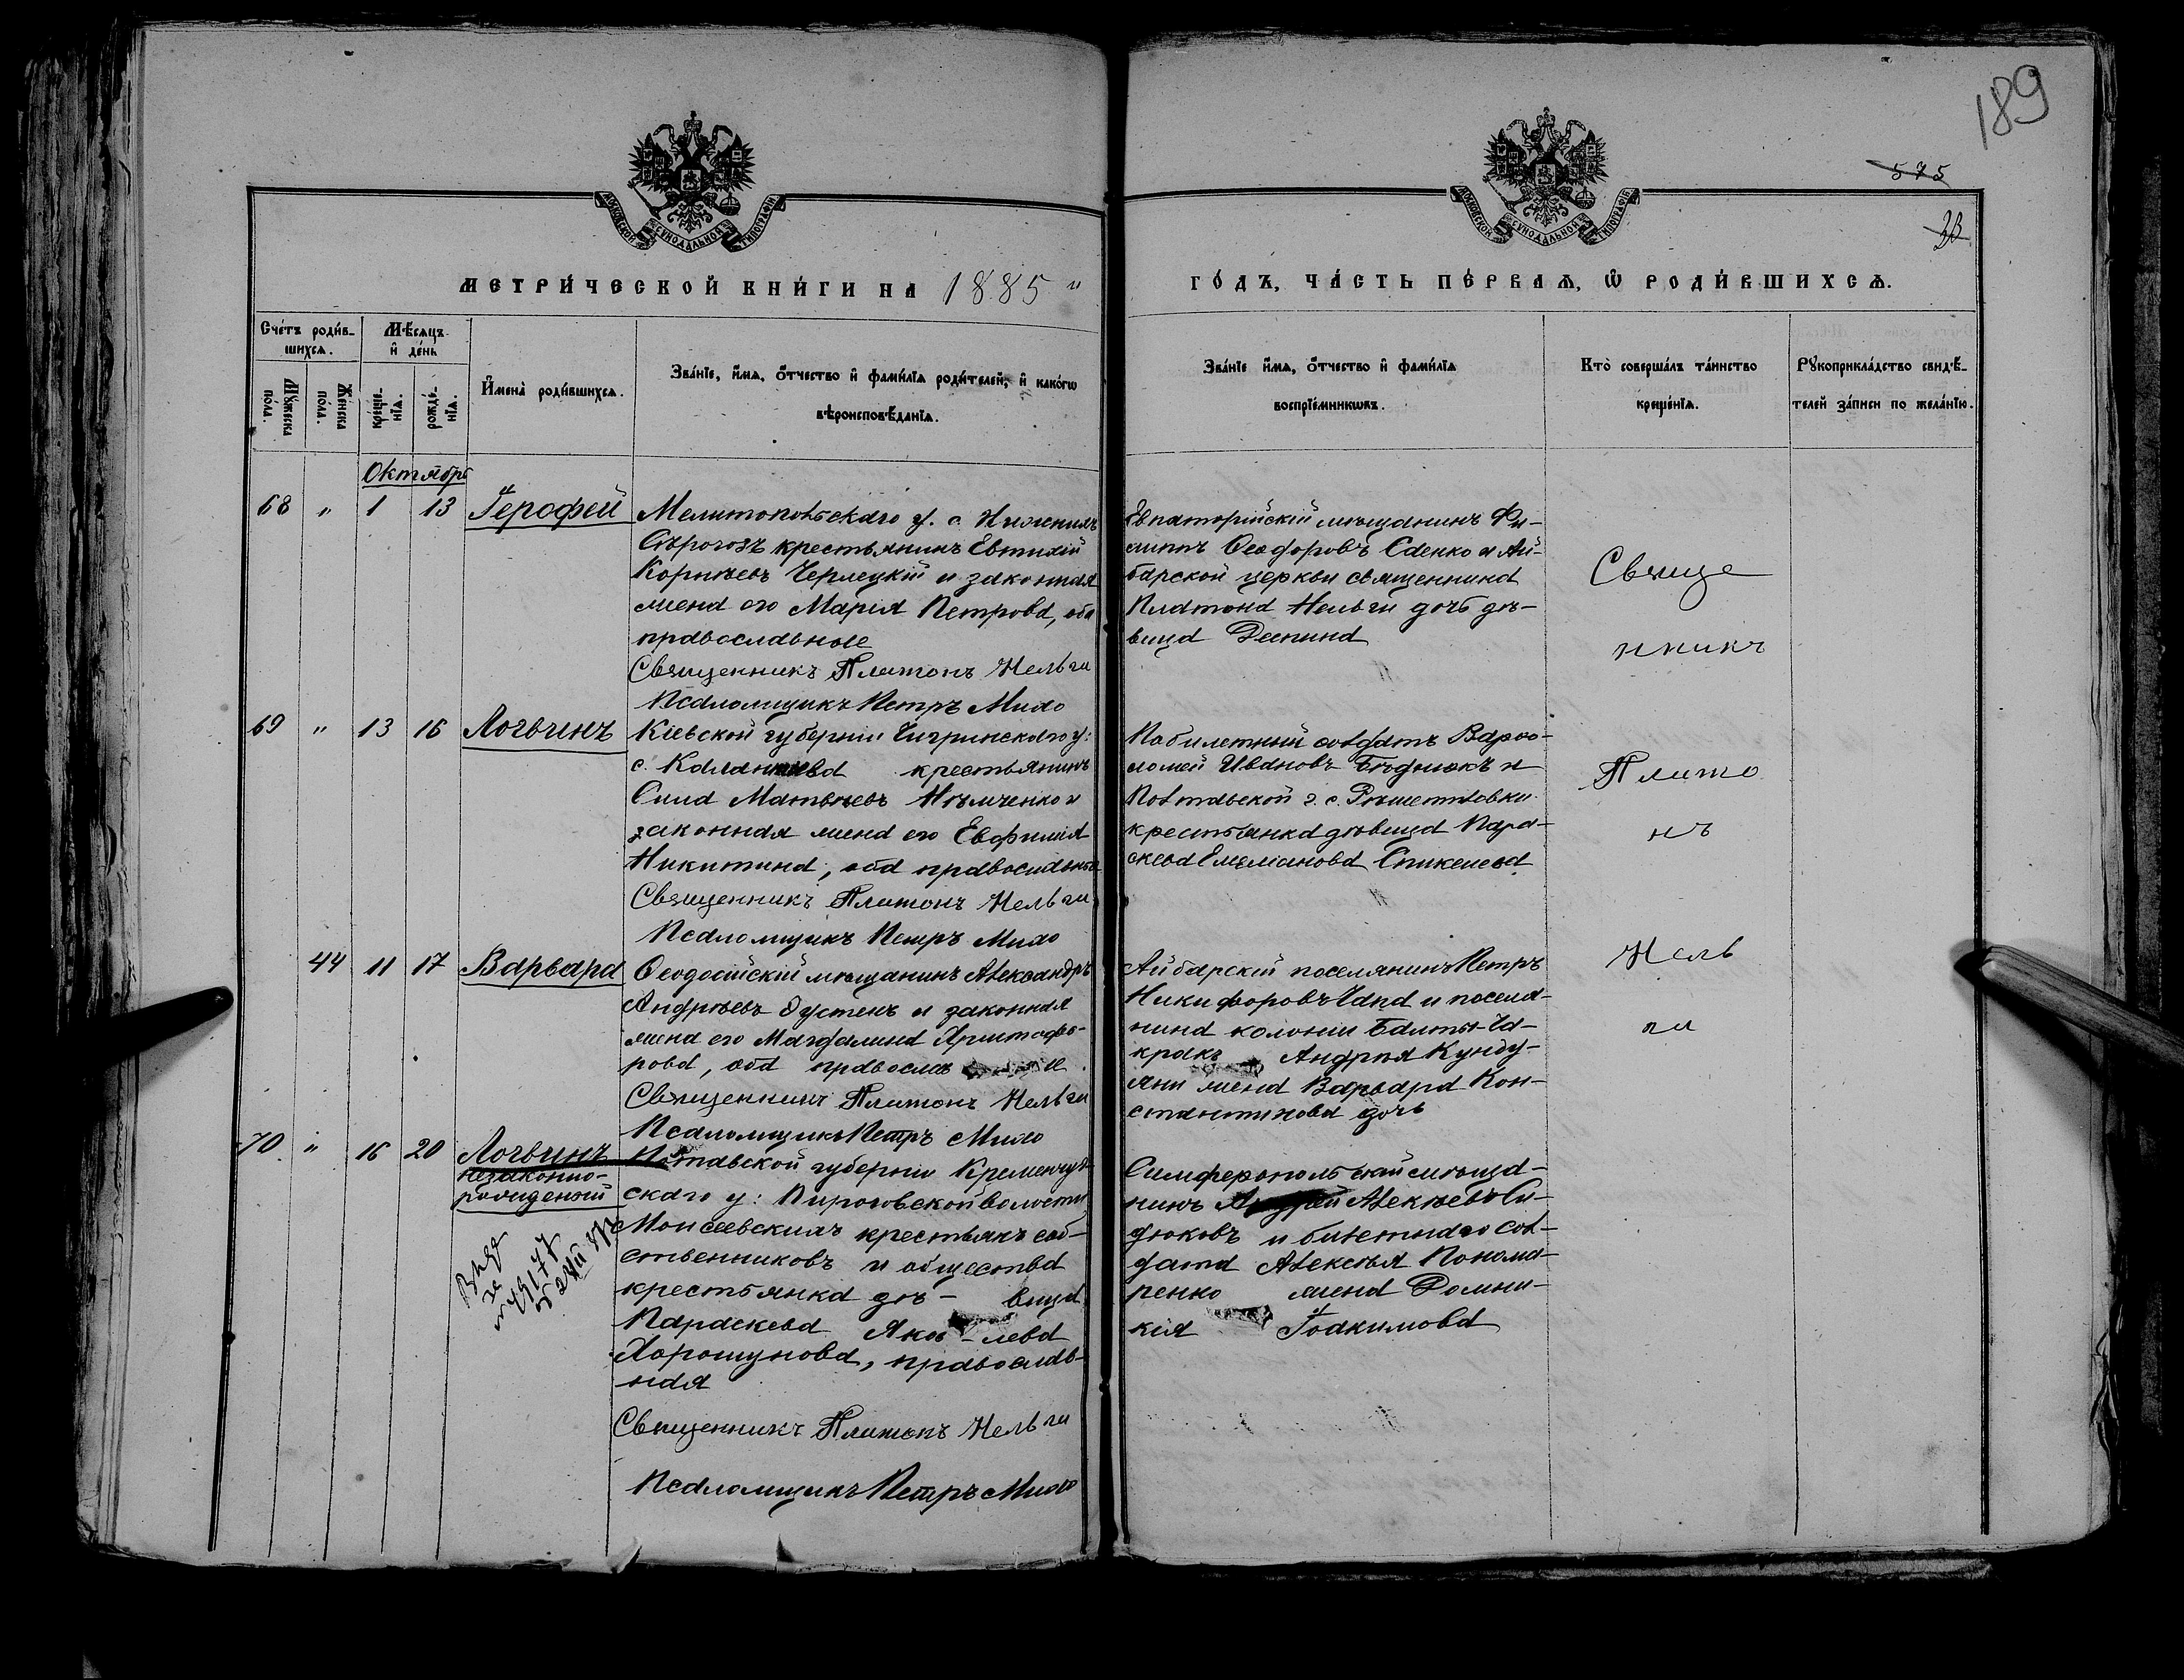 189
575
33
МОСКОВСКОЙ СУНОДАЛЬНОЙ ТИПОГРАФІИ
МОСКОВСКОЙ СУНОДАЛЬНОЙ ТИПОГРАФІИ
МЕТРИ́ЧЕСКОЙ КНИ́ГИ НА 1885 "
ГО́ДЪ, ЧА́СТЬ ПЕ́РВАѦ, Ѽ РОДИ́ВШИХСѦ.
Сче́тъ роди́в-
шихсѧ.
Мѣсѧцъ
и҆ де́нь
Мꙋжеска по́ла.
Же́нска по́ла.
креще́-
нїѧ.
рожде́-
нїѧ.
И҆мена̀ роди́вшихсѧ.
Зва́нїе, и҆́мѧ, ѻ҆́тчество и҆ фами́лїѧ роди́телей, и҆ како́гѡ
вѣроисповѣ́данїѧ.
Зва́нїе и҆́мѧ, ѻ҆́тчество и҆ фами́лїѧ
воспрїе́мникѡвъ.
Кто̀ соверша́лъ та́инство
креще́нїѧ.
Рꙋкоприкла́дство свидѣ́-
телей за́писи по жела́нїю.
Октябрь
68 " 1 13 Іерофей
Мелитопольскаго у. с. Нижнихъ
Сѣрогозъ крестьянинъ Евтихій
Корнѣевъ Черлецкій и законная
жена его Марія Петрова, оба
православные
Священникъ Платонъ Нельги
Псаломщикъ Петръ Мило
Евпаторійскій мѣщанинъ Фи-
липпъ Ѳеодоровъ Сденко и Ай-
барской церкви священника
Платона Нельги дочь дѣ-
вица Деспина
69 " 13 16 Логвинъ
Кіевской губерніи Чигринскаго у:
с. крестьянинъ
Сила Матвѣевъ Нѣмченко и
законная жена его Евфимія
Никитина, оба православные
Священникъ Платонъ Нельги
Псаломщикъ Петръ Мило
Побилетный солдатъ Варѳо-
ломей Ивановъ Бѣднюкъ и
Полтавской г. с. Рѣшетиловки
крестьянка дѣвица Пара-
скева Емеліанова
44 11 17 Варвара
Ѳеодосійскій мѣщанинъ Александръ
Андрѣевъ Дустенъ и законная
жена его Магдалина Христофо-
рова, оба православные
Священникъ Платонъ Нельги
Псаломщикъ Петръ Мило
Айбарскій поселянинъ Петръ
Никифоровъ Чапа и поселя-
нина колоніи Балты-Ча-
кракъ Андрея Кунду-
яни жена Варвара Кон-
стантинова дочь
70 " 16 20 Логвинъ
незаконно-
рожденный
Полтавской губерніи Кременчуг-
скаго у: Пироговской волости
Моисеевскихъ крестьянъ соб-
ственниковъ и общества
крестьянка дѣ- вица
Параскева Яков-лева
Хорошунова, православ-
ная
Священникъ Платонъ Нельги
Псаломщикъ Петръ Мило
Симферопольскій мѣща-
нинъ Андрей Алексѣевъ Си-
дюковъ и билетнаго сол-
дата Алексѣя Понома-
ренко жена Домни-
кія Іоакимова
Свяще
нникъ
Плато
нъ
Нель
ги